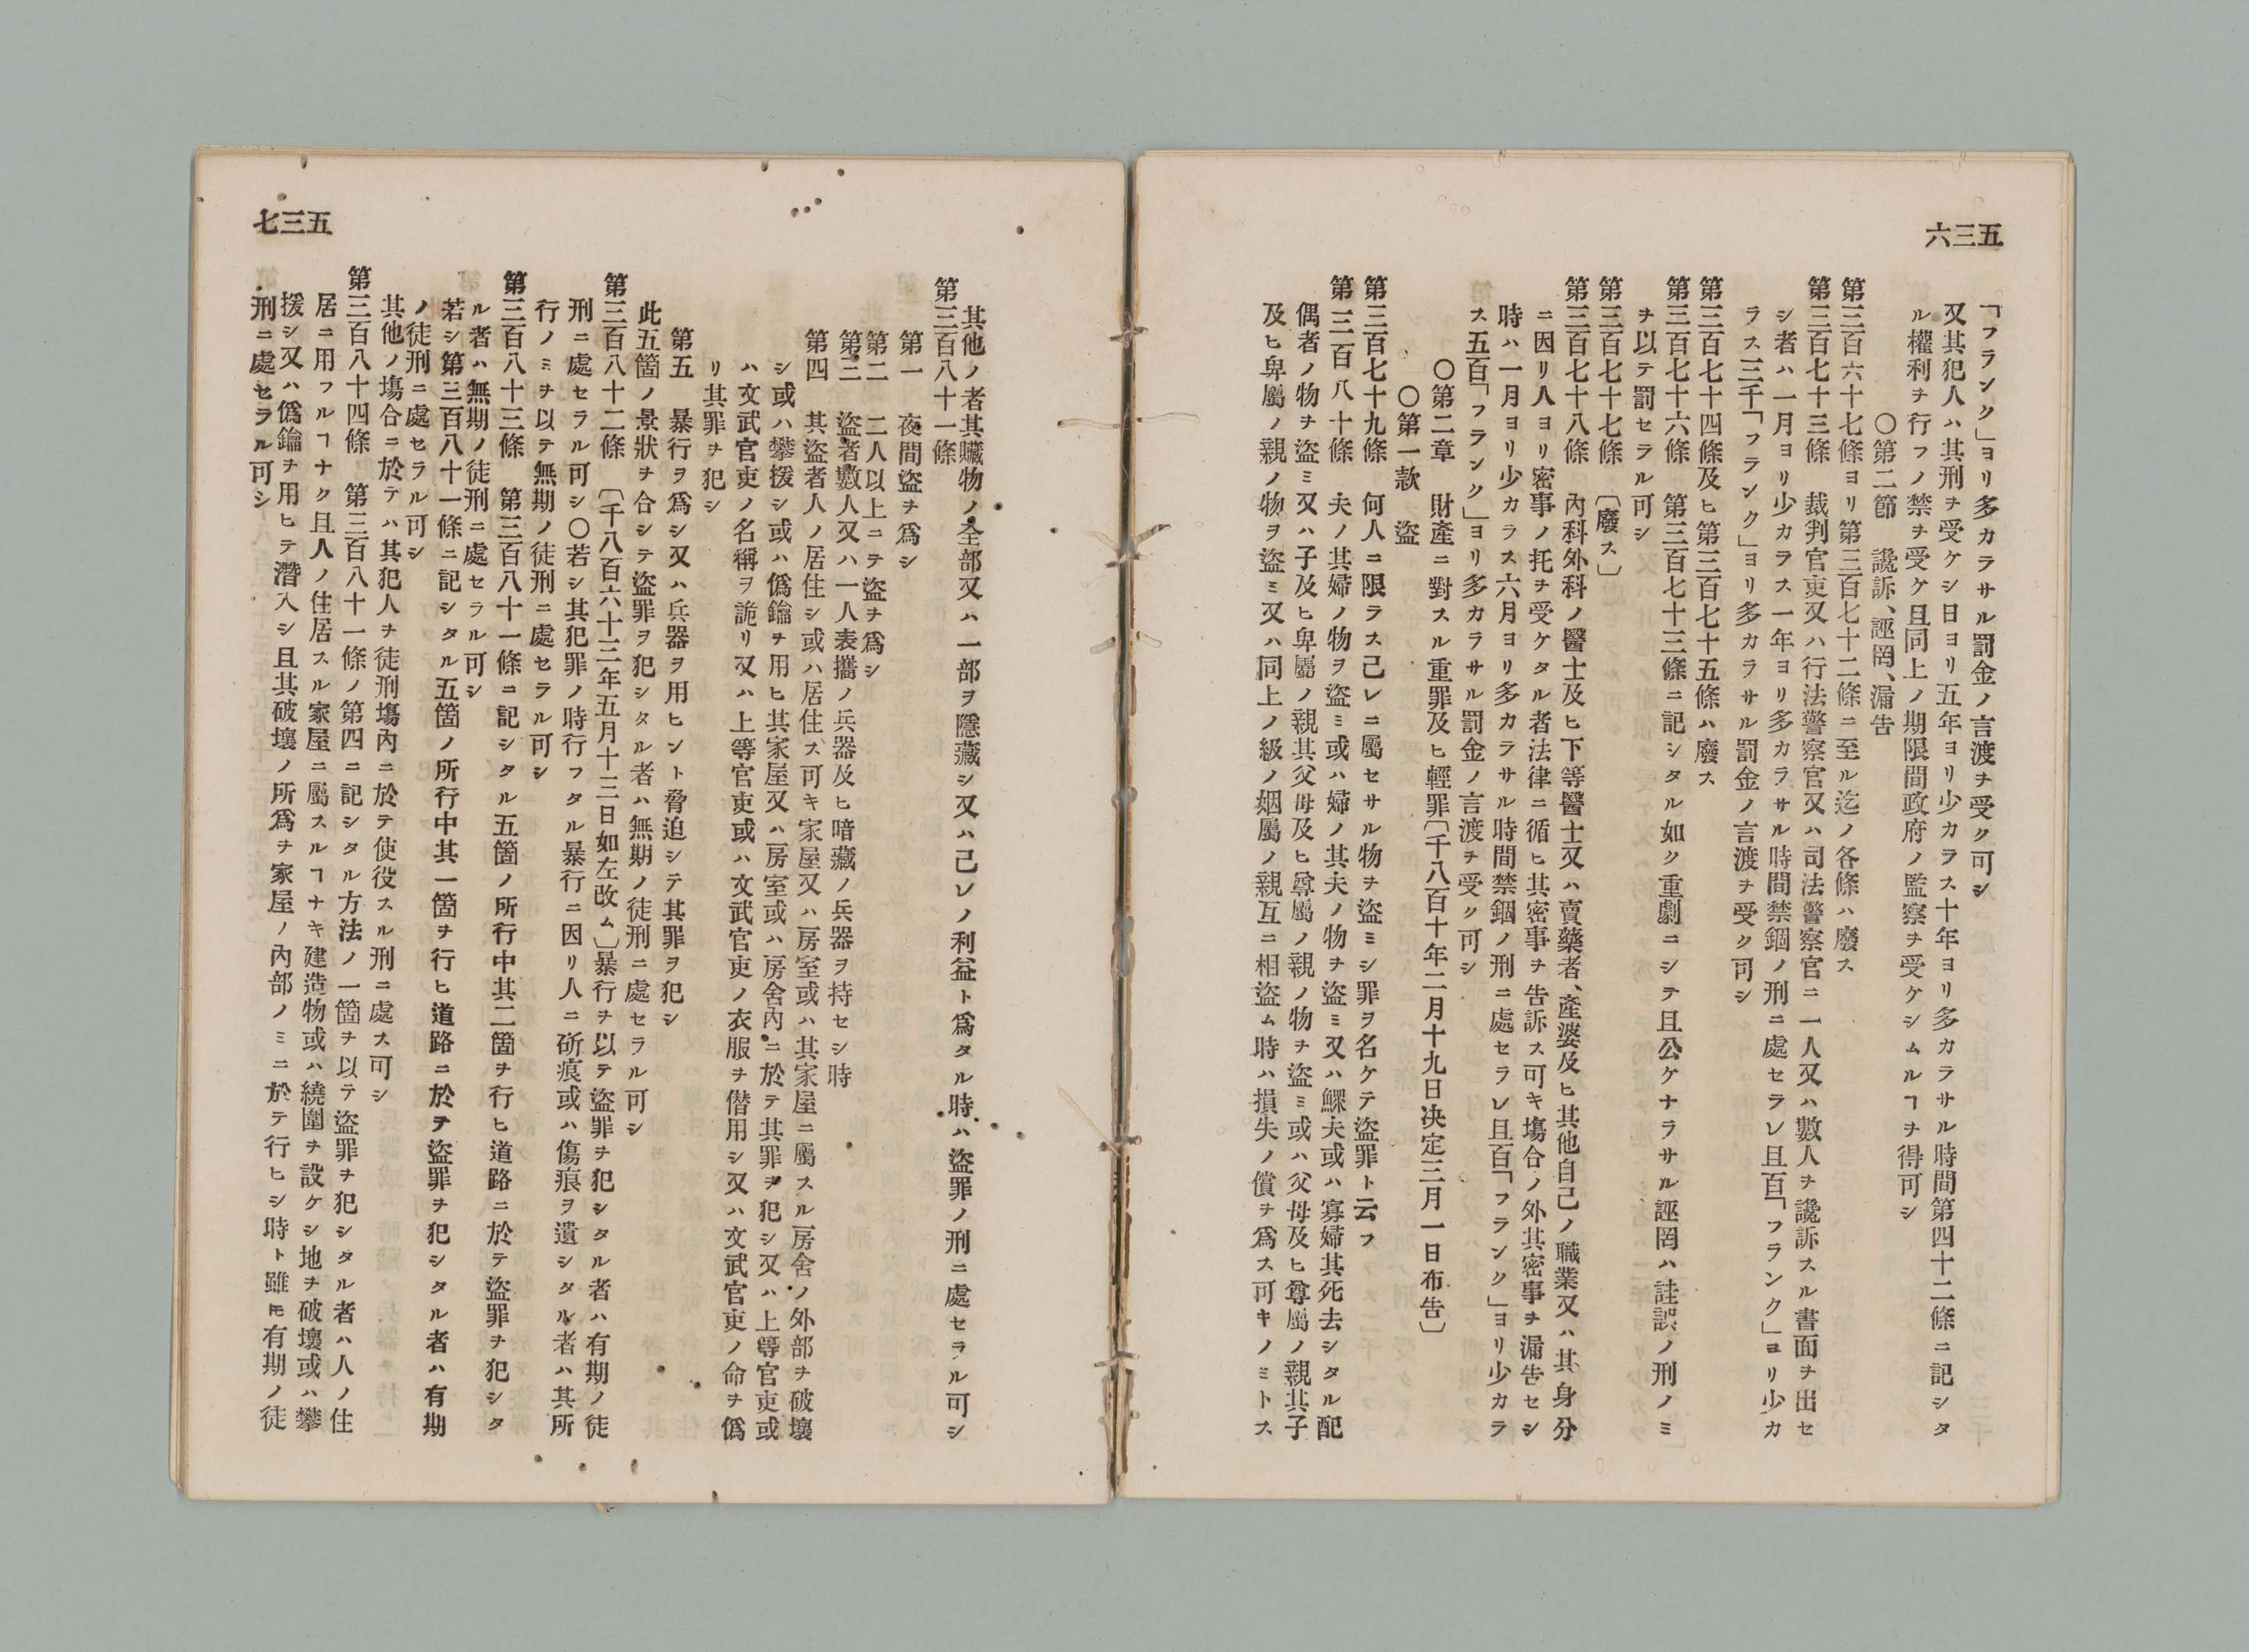 六三五
「フランク」ヨリ多カラサル罰金ノ言渡ヲ受ク可シ
又其犯人ハ其刑ヲ受ケシ日ヨリ五年ヨリ少カラス十年ヨリ多カラサル時間第四十二條ニ記シタ
ル權利ヲ行フノ禁ヲ受ケ且同上ノ期限間政府ノ監察ヲ受ケシムルヿヲ得可シ
〇第二節 讒訴、誣罔、漏告
第三百六十七條ヨリ第三百七十二條ニ至ル迄ノ各條ハ廢ス
第三百七十三條 裁判官吏又ハ行法警察官又ハ司法警察官ニ一人又ハ數人ヲ讒訴スル書面ヲ出セ
シ者ハ一月ヨリ少カラス一年ヨリ多カラサル時間禁錮ノ刑ニ處セラレ且百「フランク」ヨリ少カ
ラス三千「フランク」ヨリ多カラサル罰金ノ言渡ヲ受ク可シ
第三百七十四條及ヒ第三百七十五條ハ廢ス
第三百七十六條 第三百七十三條ニ記シタル如ク重劇ニシテ且公ケナラサル誣罔ハ註誤ノ刑ノミ
ヲ以テ罰セラル可シ
第三百七十七條 〔廢ス〕
第三百七十八條 內科外科ノ醫士及ヒ下等醫士又ハ賣藥者、產婆及ヒ其他自己ノ職業又ハ其身分
ニ因リ人ヨリ密事ノ托ヲ受ケタル者法律ニ循ヒ其密事ヲ告訴ス可キ塲合ノ外其密事ヲ漏告セシ
時ハ一月ヨリ少カラス六月ヨリ多カラサル時間禁錮ノ刑ニ處セラレ且百「フランク」ヨリ少カラ
ス五百「フランク」ヨリ多カラサル罰金ノ言渡ヲ受ク可シ
〇第二章 財產ニ對スル重罪及ヒ輕罪〔千八百十年二月十九日决定三月一日布告〕
〇第一款 盜
第三百七十九條 何人ニ限ラス己レニ屬セサル物ヲ盜ミシ罪ヲ名ケテ盜罪ト云フ
第三百八十條 夫ノ其婦ノ物ヲ盜ミ或ハ婦ノ其夫ノ物ヲ盜ミ又ハ鰥夫或ハ寡婦其死去シタル配
偶者ノ物ヲ盜ミ又ハ子及ヒ卑屬ノ親其父母及ヒ尊屬ノ親ノ物ヲ盜ミ或ハ父母及ヒ尊屬ノ親其子
及ヒ卑屬ノ親ノ物ヲ盜ミ又ハ同上ノ級ノ姻屬ノ親互ニ相盜ム時ハ損失ノ償ヲ爲ス可キノミトス
七三五
其他ノ者其贓物ノ全部又ハ一部ヲ隱藏シ又ハ己レノ利益ト爲タル時ハ盜罪ノ刑ニ處セラル可シ
第三百八十一條
第一 夜間盜ヲ爲シ
第二 二人以上ニテ盜ヲ爲シ
第三 盜者數人又ハ一人表攜ノ兵器及ヒ暗藏ノ兵器ヲ持セシ時
第四 其盜者人ノ居住シ或ハ居住ス可キ家屋又ハ房室或ハ其家屋ニ屬スル房舍ノ外部ヲ破壞
シ或ハ攀援シ或ハ僞鑰ヲ用ヒ其家屋又ハ房室或ハ房舍內ニ於テ其罪ヲ犯シ又ハ上等官吏或
ハ文武官吏ノ名稱ヲ詭リ又ハ上等官吏或ハ文武官吏ノ衣服ヲ借用シ又ハ文武官吏ノ命ヲ僞
リ其罪ヲ犯シ
第五 暴行ヲ爲シ又ハ兵器ヲ用ヒント脅迫シテ其罪ヲ犯シ
此五箇ノ景狀ヲ合シテ盜罪ヲ犯シタル者ハ無期ノ徒刑ニ處セラル可シ
第三百八十二條 〔千八百六十三年五月十三日如左改ム〕暴行ヲ以テ盜罪ヲ犯シタル者ハ有期ノ徒
刑ニ處セラル可シ〇若シ其犯罪ノ時行フタル暴行ニ因リ人ニ斫痕或ハ傷痕ヲ遺シタル者ハ其所
行ノミヲ以テ無期ノ徒刑ニ處セラル可シ
第三百八十三條 第三百八十一條ニ記シタル五箇ノ所行中其二箇ヲ行ヒ道路ニ於テ盜罪ヲ犯シタ
ル者ハ無期ノ徒刑ニ處セラル可シ
若シ第三百八十一條ニ記シタル五箇ノ所行中其一箇ヲ行ヒ道路ニ於テ盜罪ヲ犯シタル者ハ有期
ノ徒刑ニ處セラル可シ
其他ノ塲合ニ於テハ其犯人ヲ徒刑塲內ニ於テ使役スル刑ニ處ス可シ
第三百八十四條 第三百八十一條ノ第四ニ記シタル方法ノ一箇ヲ以テ盜罪ヲ犯シタル者ハ人ノ住
居ニ用フルヿナク且人ノ住居スル家屋ニ屬スルヿナキ建造物或ハ繞圍ヲ設ケシ地ヲ破壞或ハ攀
援シ又ハ僞鑰ヲ用ヒテ潛入シ且其破壞ノ所爲ヲ家屋ノ內部ノミニ於テ行ヒシ時ト雖𪜈有期ノ徒
刑ニ處セラル可シ